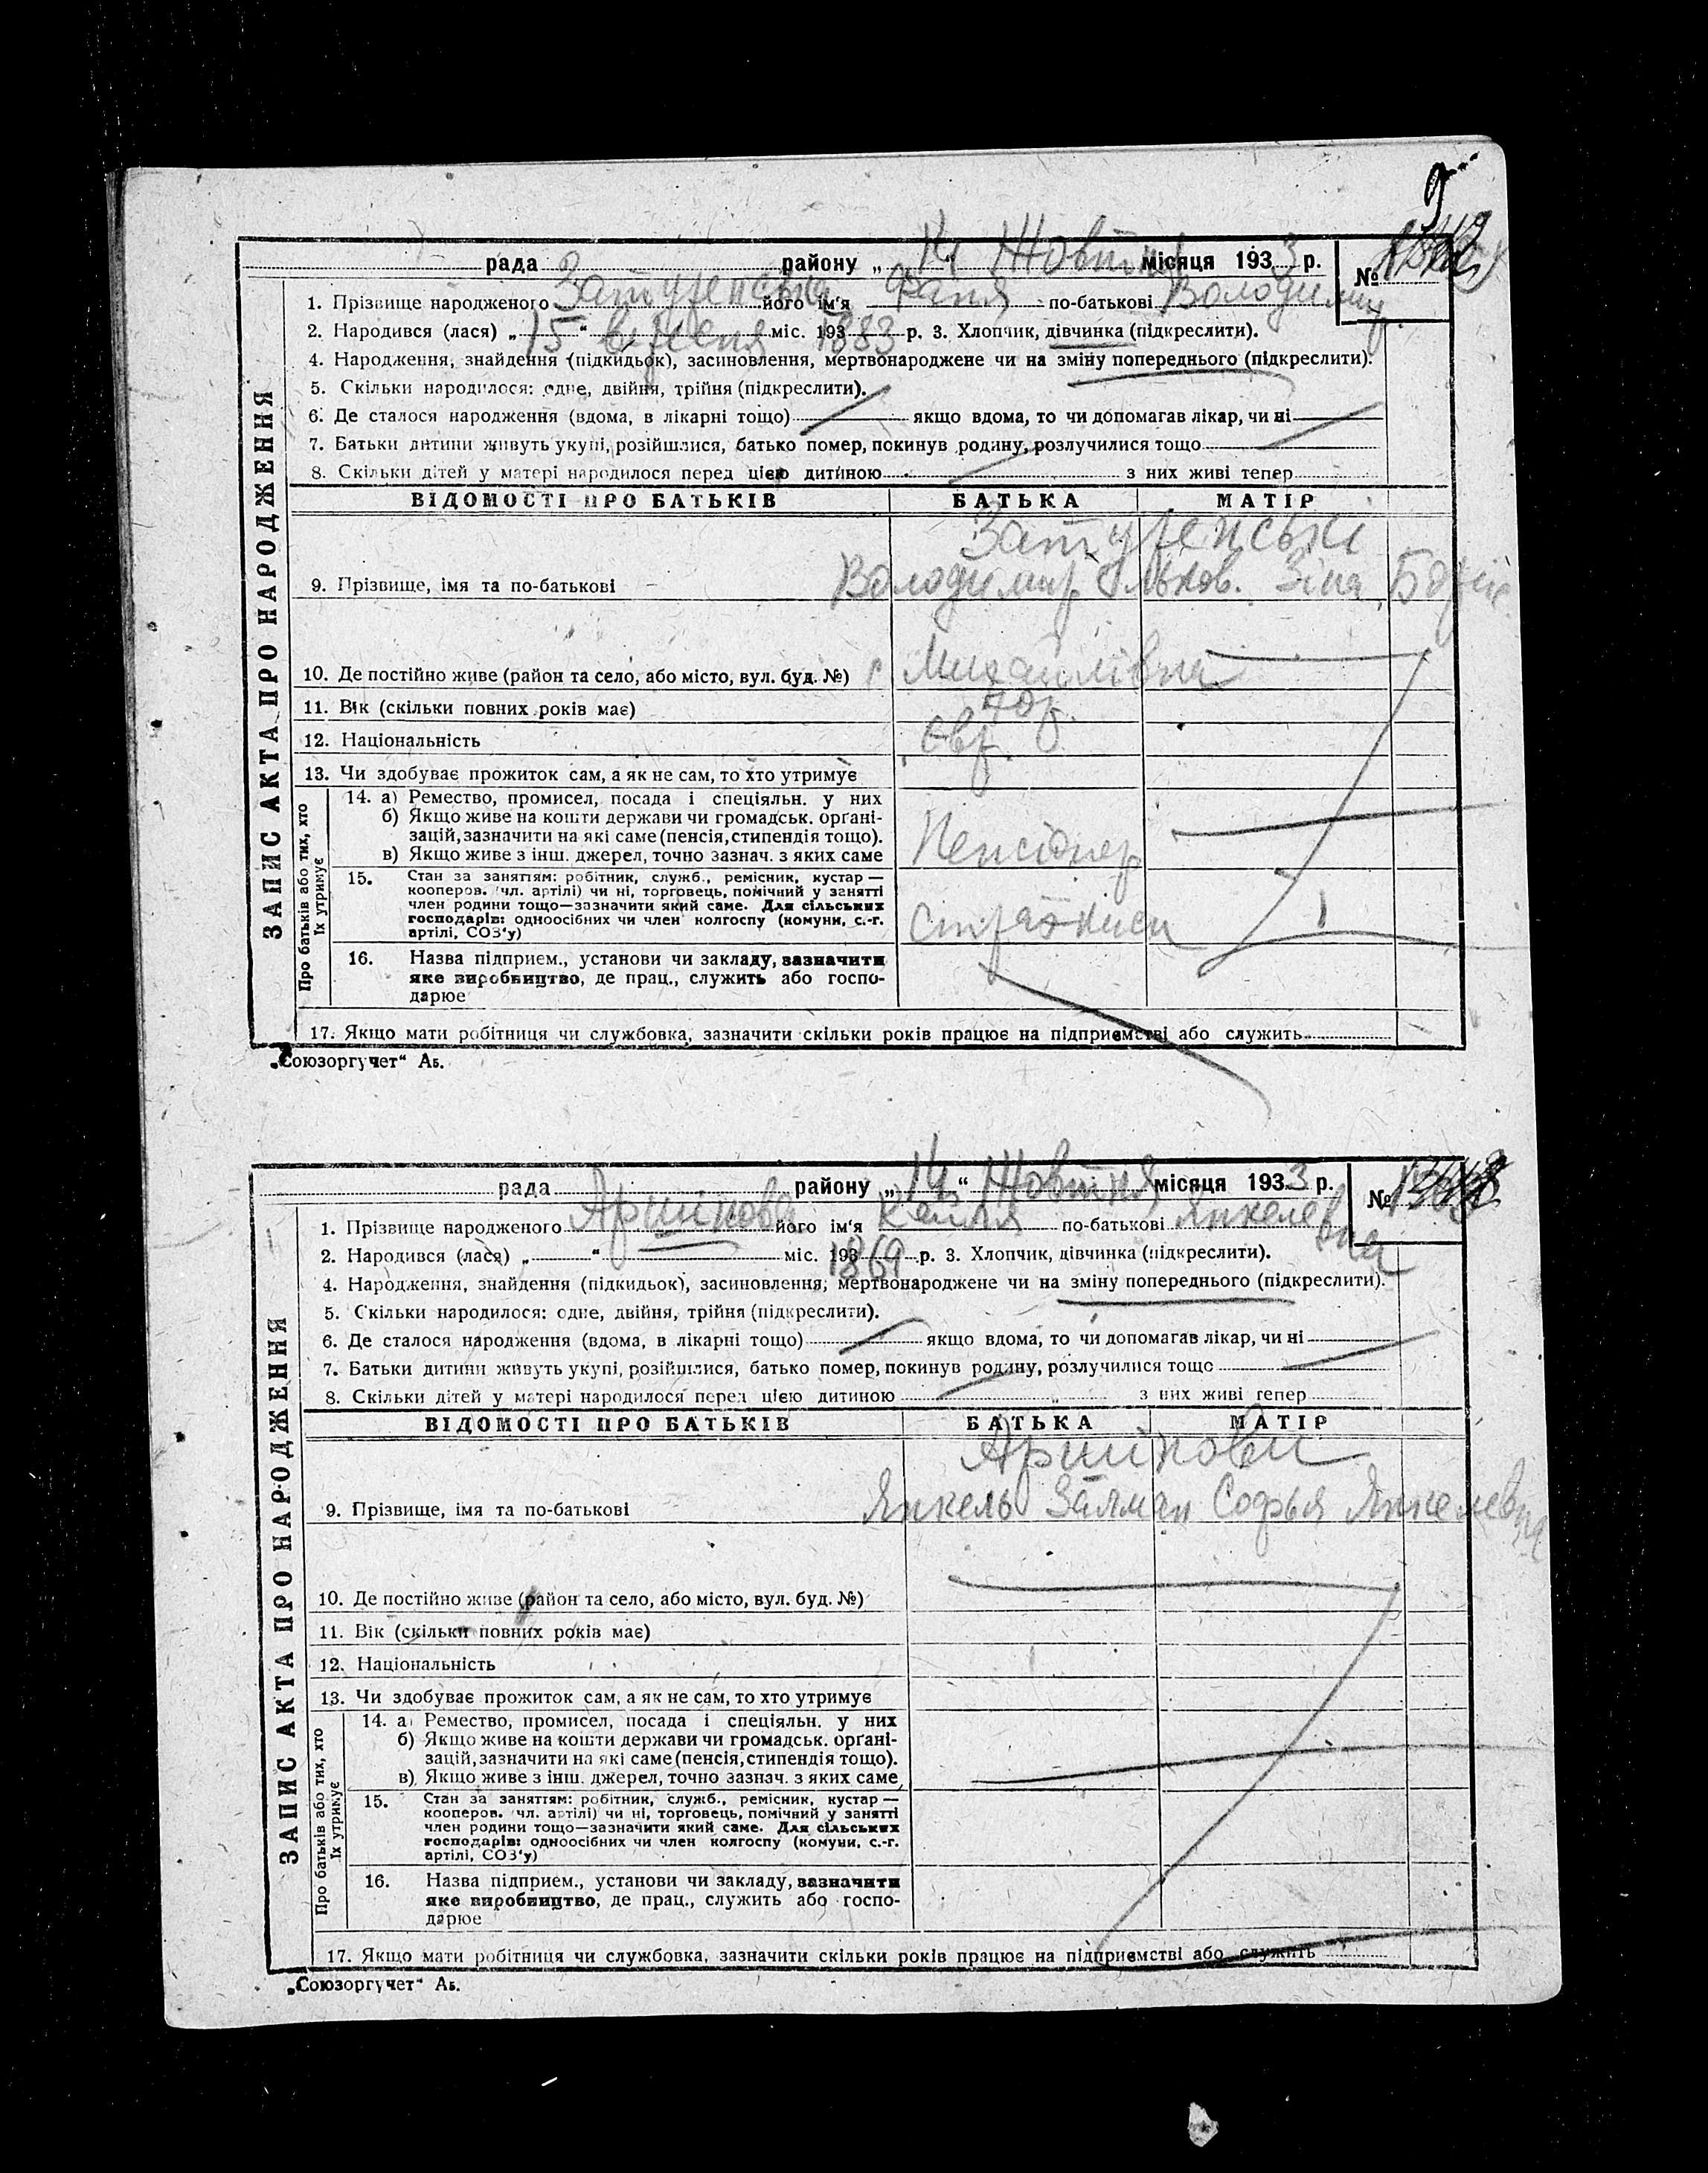 9
рада району „14“ Жовтня місяця 1933 р. №
1. Прізвище народженого його ім'я Фаня по-батькові Володимир.
2. Народився (лася) „15“ вересня міс. 1883 р. 3. Хлопчик, дівчинка (підкреслити).
4. Народження, знайдення (підкидьок), засиновлення, мертвонароджене чи на зміну попереднього (підкреслити).
5. Скільки народилося: одне, двійня, трійня (підкреслити).
6. Де сталося народження (вдома, в лікарні тощо) якщо вдома, то чи допомагав лікар, чи ні
7. Батьки дитини живуть укупі, розійшлися, батько помер, покинув родину, розлучилися тощо
8. Скільки дітей у матері народилося перед цією дитиною з них живі тепер
ЗАПИС АКТА ПРО НАРОДЖЕННЯ
ВІДОМОСТІ ПРО БАТЬКІВ БАТЬКА МАТІР
9. Прізвище, імя та по-батькові Володимир Зіна
10. Де постійно живе (район та село, або місто, вул. буд. №) с Михайлівка
11. Вік (скільки повних років має) 70 р.
12. Національність Євр.
13. Чи здобуває прожиток сам, а як не сам, то хто утримує
Про батьків або тих, хто їх утримує
14. а) Ремество, промисел, посада і спеціяльн. у них
б) Якщо живе на кошти держави чи громадськ. орґані-
зацій, зазначити на які саме (пенсія, стипендія тощо).
в) Якщо живе з інш. джерел, точно зазнач. з яких саме
Пенсіонер
15. Стан за заняттям: робітник, служб., ремісник, кустар —
кооперов. (чл. артілі) чи ні, торговець, помічний у занятті
член родини тощо—зазначити який саме. Для сільських
господарів: одноосібних чи член колгоспу (комуни, с.-г.
артілі, СОЗ'у)
страхкаси
16. Назва підприєм., установи чи закладу, зазначити
яке виробництво, де прац., служить або госпо-
дарює
17. Якщо мати робітниця чи службовка, зазначити скільки років працює на підприємстві або служить
„Союзоргучет“ Аб.
рада району „14“ Жовтня місяця 1933 р. №
1. Прізвище народженого Аршінова його ім'я Кейля по-батькові Янкелевна
2. Народився (лася) „ “ міс. 1869 р. 3. Хлопчик, дівчинка (підкреслити).
4. Народження, знайдення (підкидьок), засиновлення, мертвонароджене чи на зміну попереднього (підкреслити).
5. Скільки народилося: одне, двійня, трійня (підкреслити).
6. Де сталося народження (вдома, в лікарні тощо) якщо вдома, то чи допомагав лікар, чи ні
7. Батьки дитини живуть укупі, розійшлися, батько помер, покинув родину, розлучилися тощо
8. Скільки дітей у матері народилося перед цією дитиною з них живі тепер
ЗАПИС АКТА ПРО НАРОДЖЕННЯ
ВІДОМОСТІ ПРО БАТЬКІВ БАТЬКА МАТІР
Аршінови
9. Прізвище, імя та по-батькові Янкель Залман Софья Янкелевна
10. Де постійно живе (район та село, або місто, вул. буд. №)
11. Вік (скільки повних років має)
12. Національність
13. Чи здобуває прожиток сам, а як не сам, то хто утримує
Про батьків або тих, хто їх утримує
14. а) Ремество, промисел, посада і спеціяльн. у них
б) Якщо живе на кошти держави чи громадськ. орґані-
зацій, зазначити на які саме (пенсія, стипендія тощо).
в) Якщо живе з інш. джерел, точно зазнач. з яких саме
15. Стан за заняттям: робітник, служб., ремісник, кустар —
кооперов. (чл. артілі) чи ні, торговець, помічний у занятті
член родини тощо—зазначити який саме. Для сільських
господарів: одноосібних чи член колгоспу (комуни, с.-г.
артілі, СОЗ'у)
16. Назва підприєм., установи чи закладу, зазначити
яке виробництво, де прац., служить або госпо-
дарює
17. Якщо мати робітниця чи службовка, зазначити скільки років працює на підприємстві або служить
„Союзоргучет“ Аб.